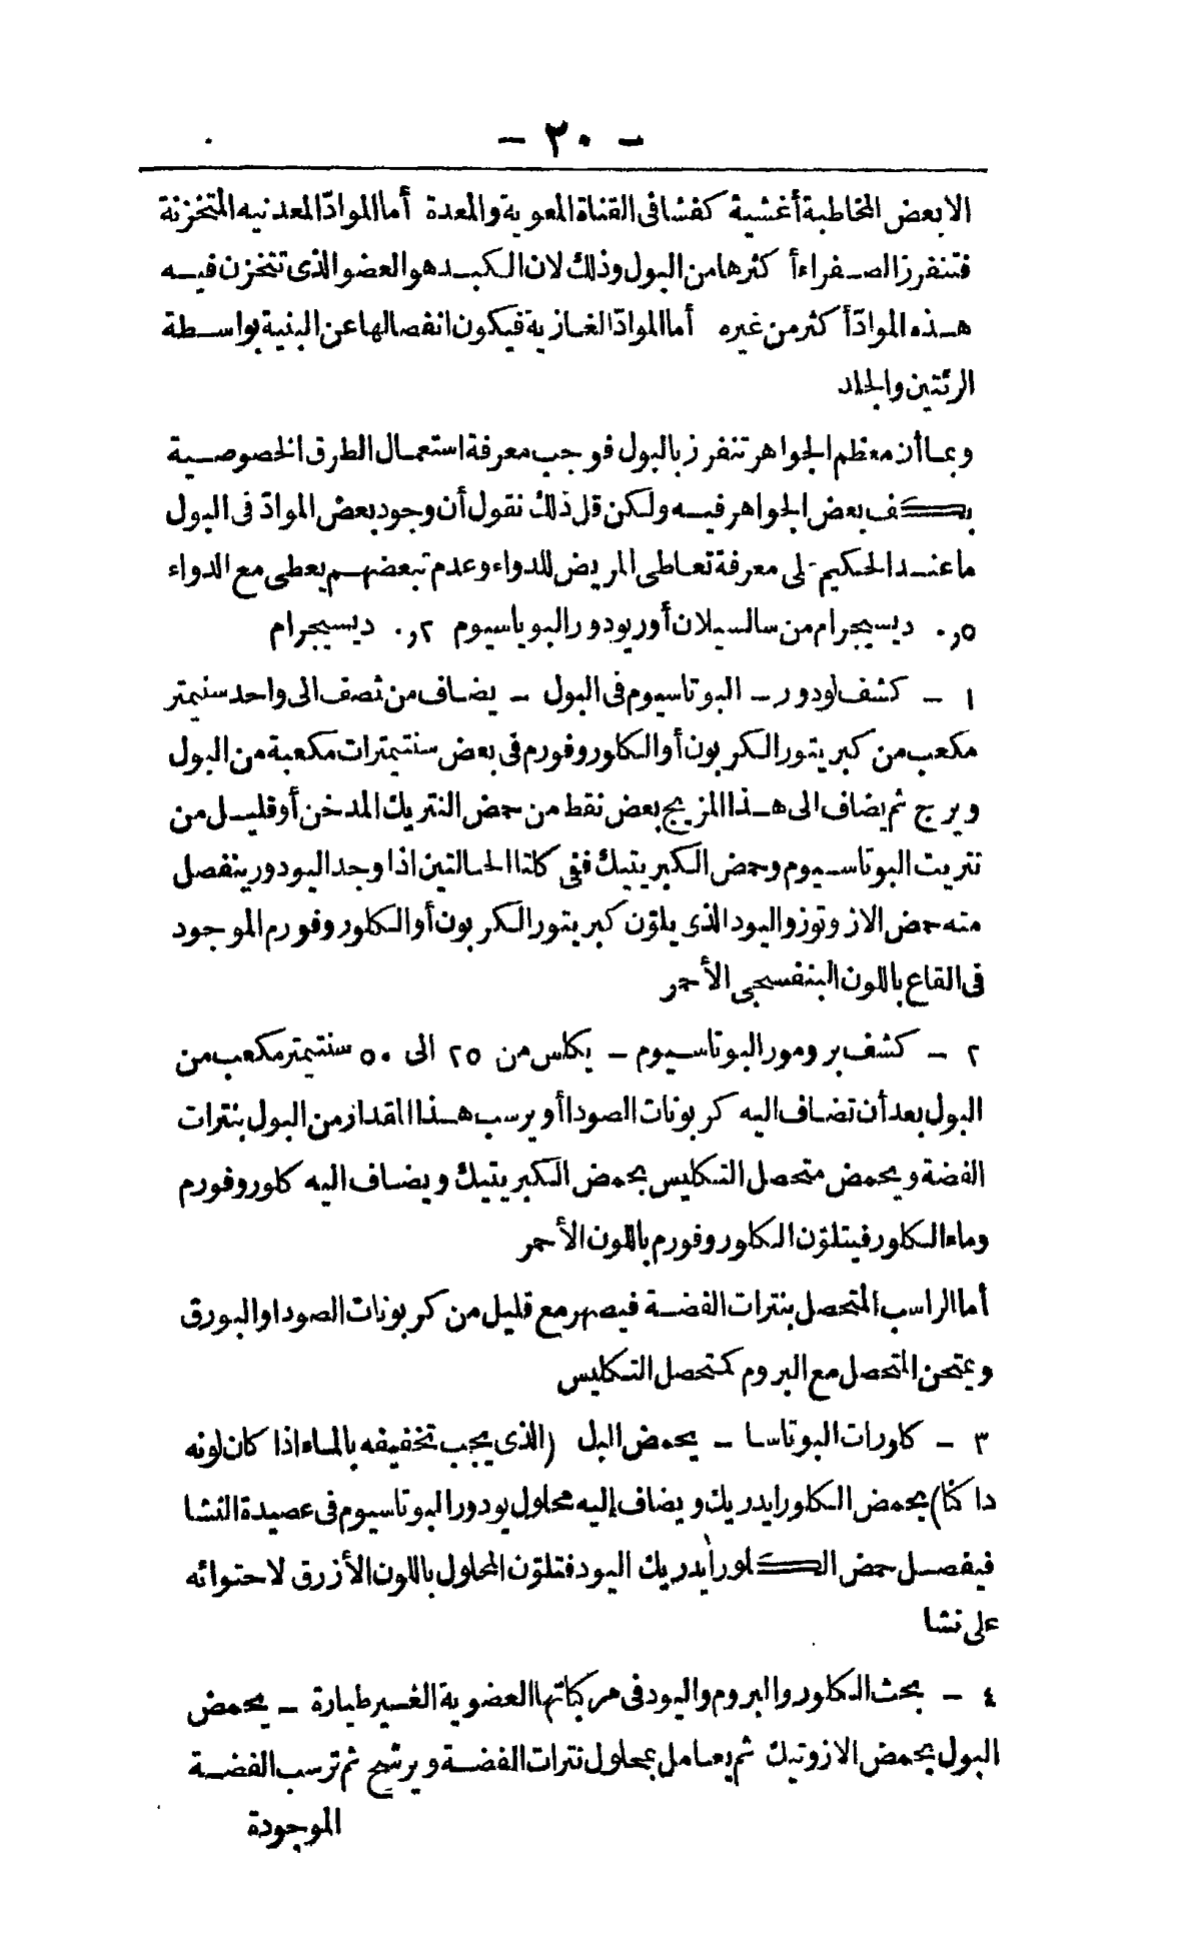 - ٢٠ -
الا بعض المخاطية أغشية كغشا فى القناة المعوية والمعدة أما الموادّ المعدنيه المتخزنة
فتنفرز الصفراء أكثرها من البول وذلك لان الكبد هو العضو الذى تتخزن فيه
هذه الموادّ أكثر من غيره أما الموادّ الغازية فيكون انفصالها عن البنية بواسطة
الرئتين والجلد
وبما أن معظم الجواهر تنفرز بالبول فوجب معرفة استعمال الطرق الخصوصية
بكشف بعض الجواهر فيه ولكن قل ذلك نقول أن وجود بعض الموادّ فى البول
ما عند الحكيم لى معرفة تعاطى المريض للدواء وعدم تبعضهم يعطى مع الدواء
٠,٥ ديسيجرام من سالسيلان أو ريودور البوياسيوم ٠,٢ ديسيجرام
١ - كشف لودور - البوتاسيوم فى البول - يضاف من نصف الى واحد سنيمتر
مكعب من كبريتور الكربون أو الكلوروفورم فى بعض سنتيمترات مكعبة من البول
ويرج ثم يضاف الى هذا المزيج بعض نقط من حمض النتريك المدخن أو قليل من
نتريت البوتاسيوم وحمض الكبريتيك ففى كلتا الحالتين اذا وجد اليودور ينفصل
منه حمض الازوتوز واليود الذى يلوّن كبريتور الكربون أو الكلوروفورم الموجود
فى القاع باللون البنفسجى الأحمر
٢ - كشف برومور البوتاسيوم - يكلس من ٢٥ الى ٥٠ سنتيمتر مكعب من
البول بعد أن تضاف اليه كربونات الصودا أو يرسب هذا المقدار من البول بنترات
الفضة ويحمض متحصل التكليس بحمض الكبريتيك ويضاف اليه كلوروفورم
وماء الكلور فيتلوّن الكلوروفورم باللون الأحمر
أما الراسب المتحصل بنترات الفضة فيصهر مع قليل من كربونات الصودا والبورق
ويمتحن المتحصل مع البروم كمتحصل التكليس
٣ - كلورات البوتاسا - يحمض البل (الذى يجب تخفيفه بالماء اذا كان لونه
داكنا) بحمض الكلورايدريك ويضاف إليه محلول يودور البوتاسيوم فى عصيدة النشا
فيفصل حمض الكلورايدريك اليود فتلوّن المحلول باللون الأزرق لاحتوائه
على نشا
٤ - بحث الكلور والبروم واليود فى مركباتها العضوية الغير طيارة - يحمض
البول بحمض الازوتيك ثم يعامل بمحلول نترات الفضة ويرشح ثم ترسب الفضة
الموجودة